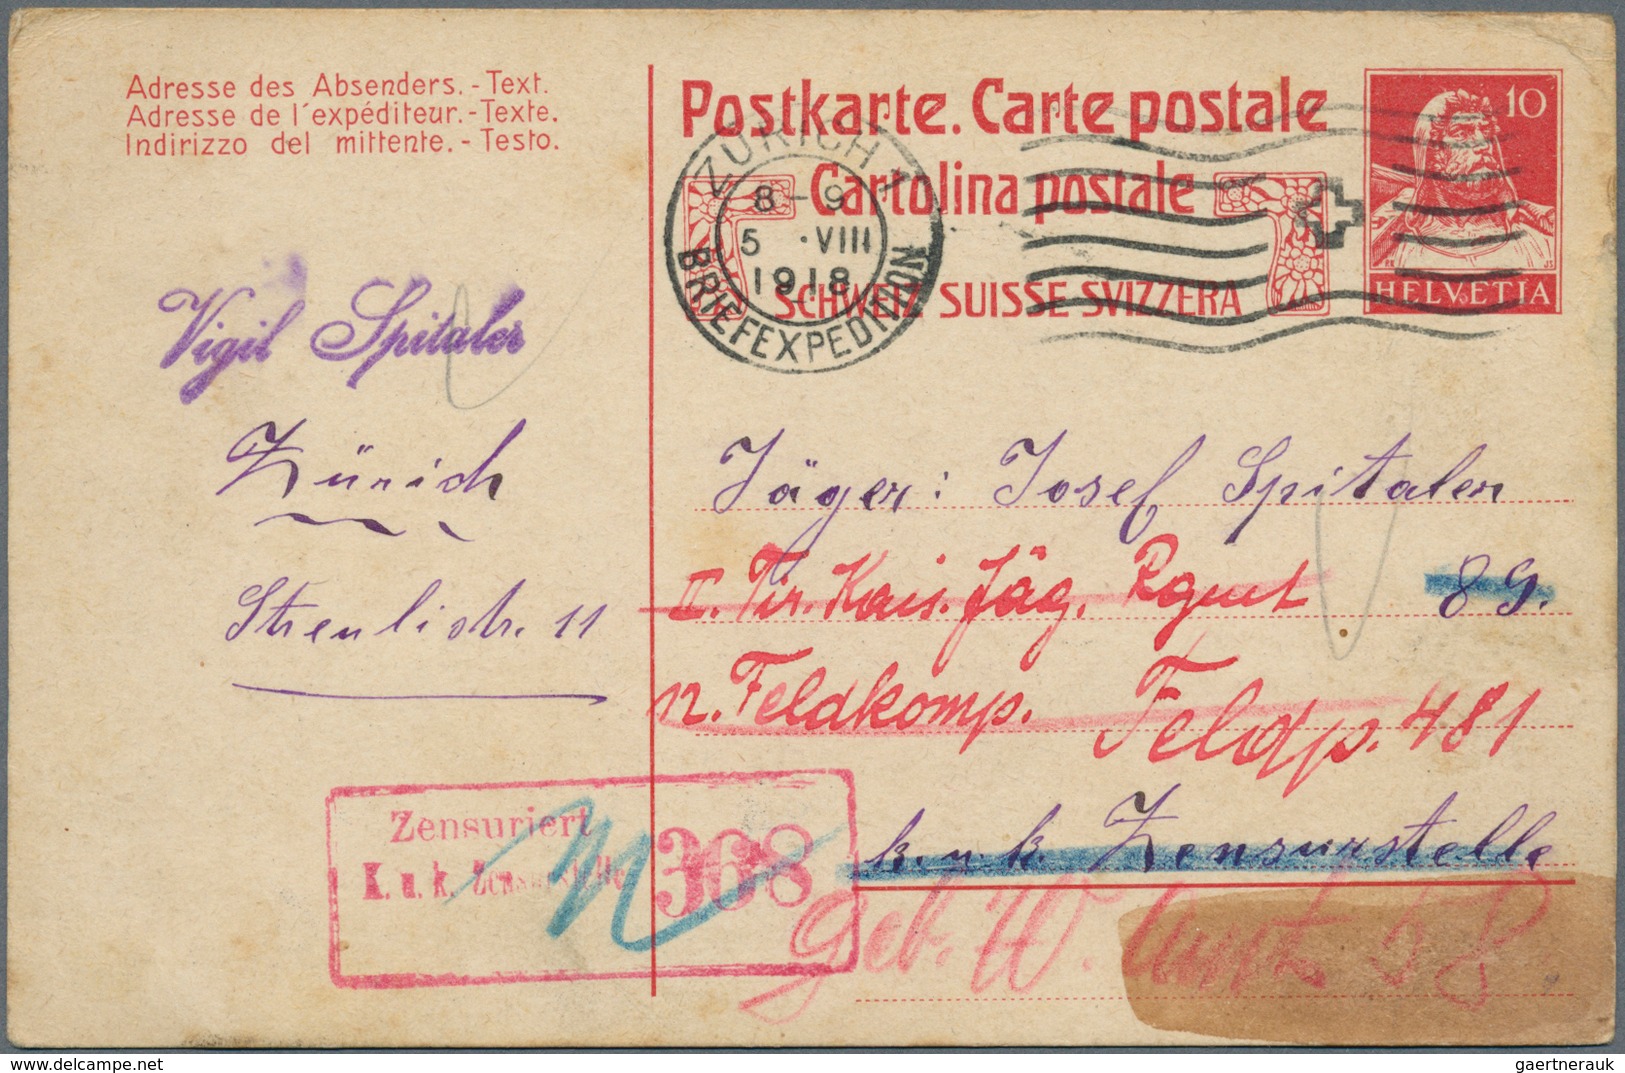 Adresse des Absenders. - Text.
Adresse de l'expéditeur. - Texte.
Indirizzo del mittente. - Testo.
Postkarte. Carte postale
Cartolina postale
SCHWEIZ SUISSE SVIZZERA
10
HELVETIA
ZÜRICH 1
8-9
5 .VIII
1918
BRIEFEXPEDITION
Vigil Spitaler
Zürich
Streulistr. 11
Jäger: Josef Spitaler
II. Tir. Kais. Jäg. Rgmt 89.
12. Feldkomp. Feldp. 481
k. u. k. Zensurstelle
geb. W. 58
Zensuriert
K. u. k. Zensurstelle
368
delcampe.net
gaertnerauk